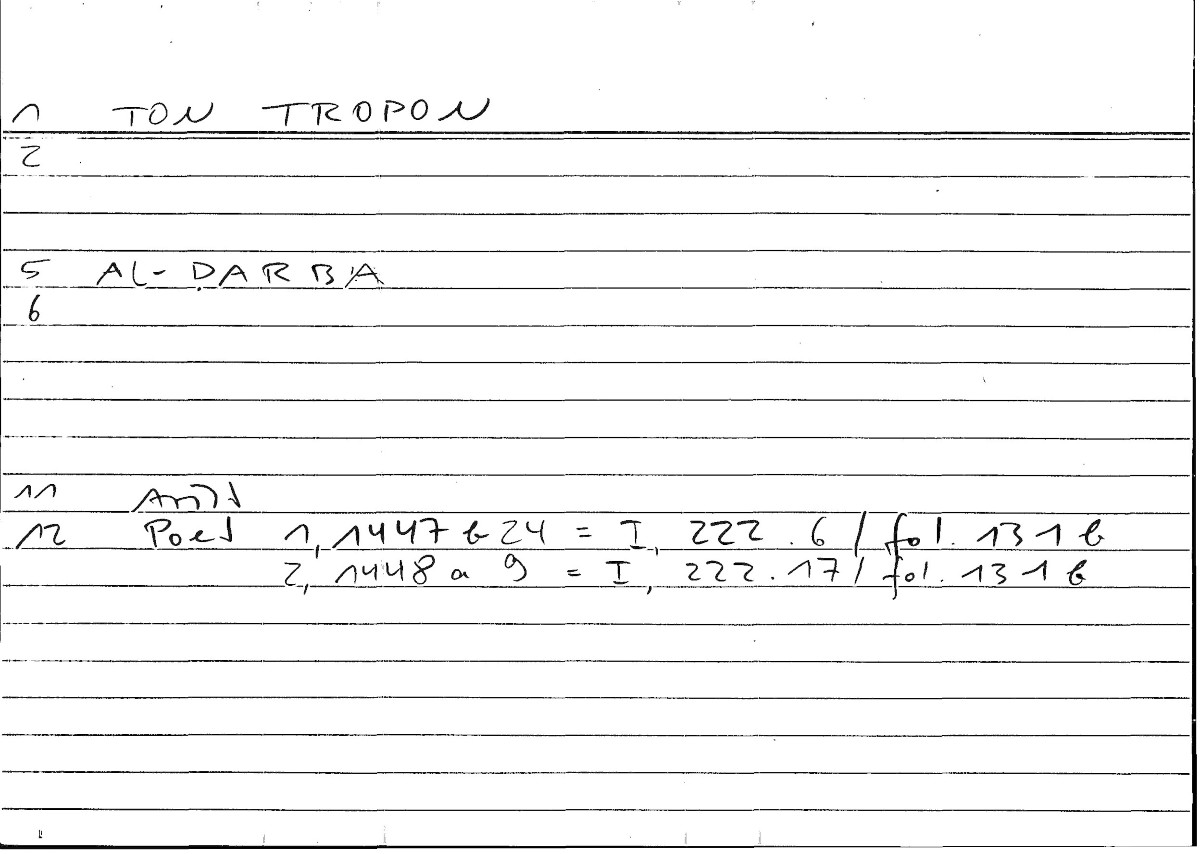 1 TON TROPON
2
5 AL-ḌARBA
6
11 Arist
12 Poet 1, 1447 b 24 = I, 222.6 / fol. 131 b
2, 1448 a 9 = I, 222.17 / fol. 131 b